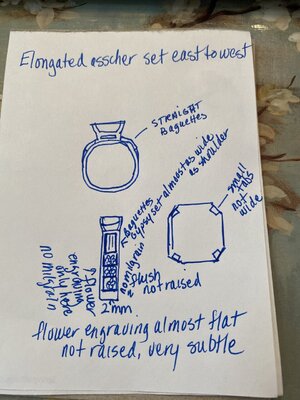 Elongated asscher set east to west
STRAIGHT
Baguettes
small
Tabs
not
wide
Baguettes
Gypsy set almost as wide
as shoulder
no milgrain
flush
not raised
flower
engraving
only here
no milgrain
2mm
flower engraving almost flat
not raised, very subtle